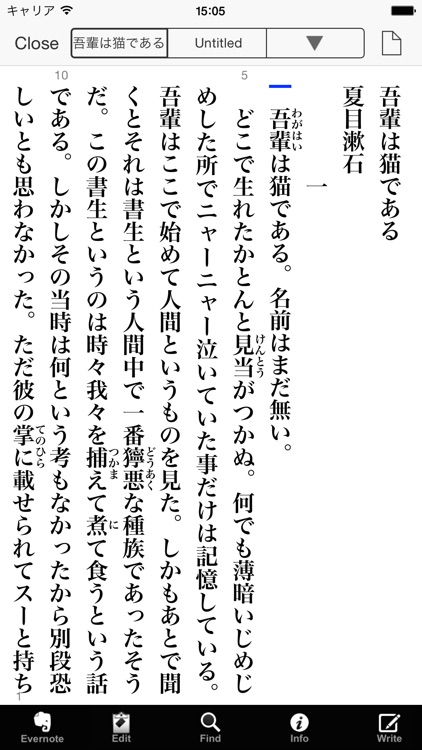 キャリア 15:05
Close 吾輩は猫である Untitled ▼
10 5
吾輩は猫である
夏目漱石
一
吾輩は猫である。名前はまだ無い。
わがはい
どこで生れたかとんと見当がつかぬ。何でも薄暗いじめじ
けんとう
めした所でニャーニャー泣いていた事だけは記憶している。
吾輩はここで始めて人間というものを見た。しかもあとで聞
くとそれは書生という人間中で一番獰悪な種族であったそう
どうあく
だ。この書生というのは時々我々を捕えて煮て食うという話
つかま に
である。しかしその当時は何という考もなかったから別段恐
しいとも思わなかった。ただ彼の掌に載せられてスーと持ち
てのひら
1
Evernote Edit Find Info Write